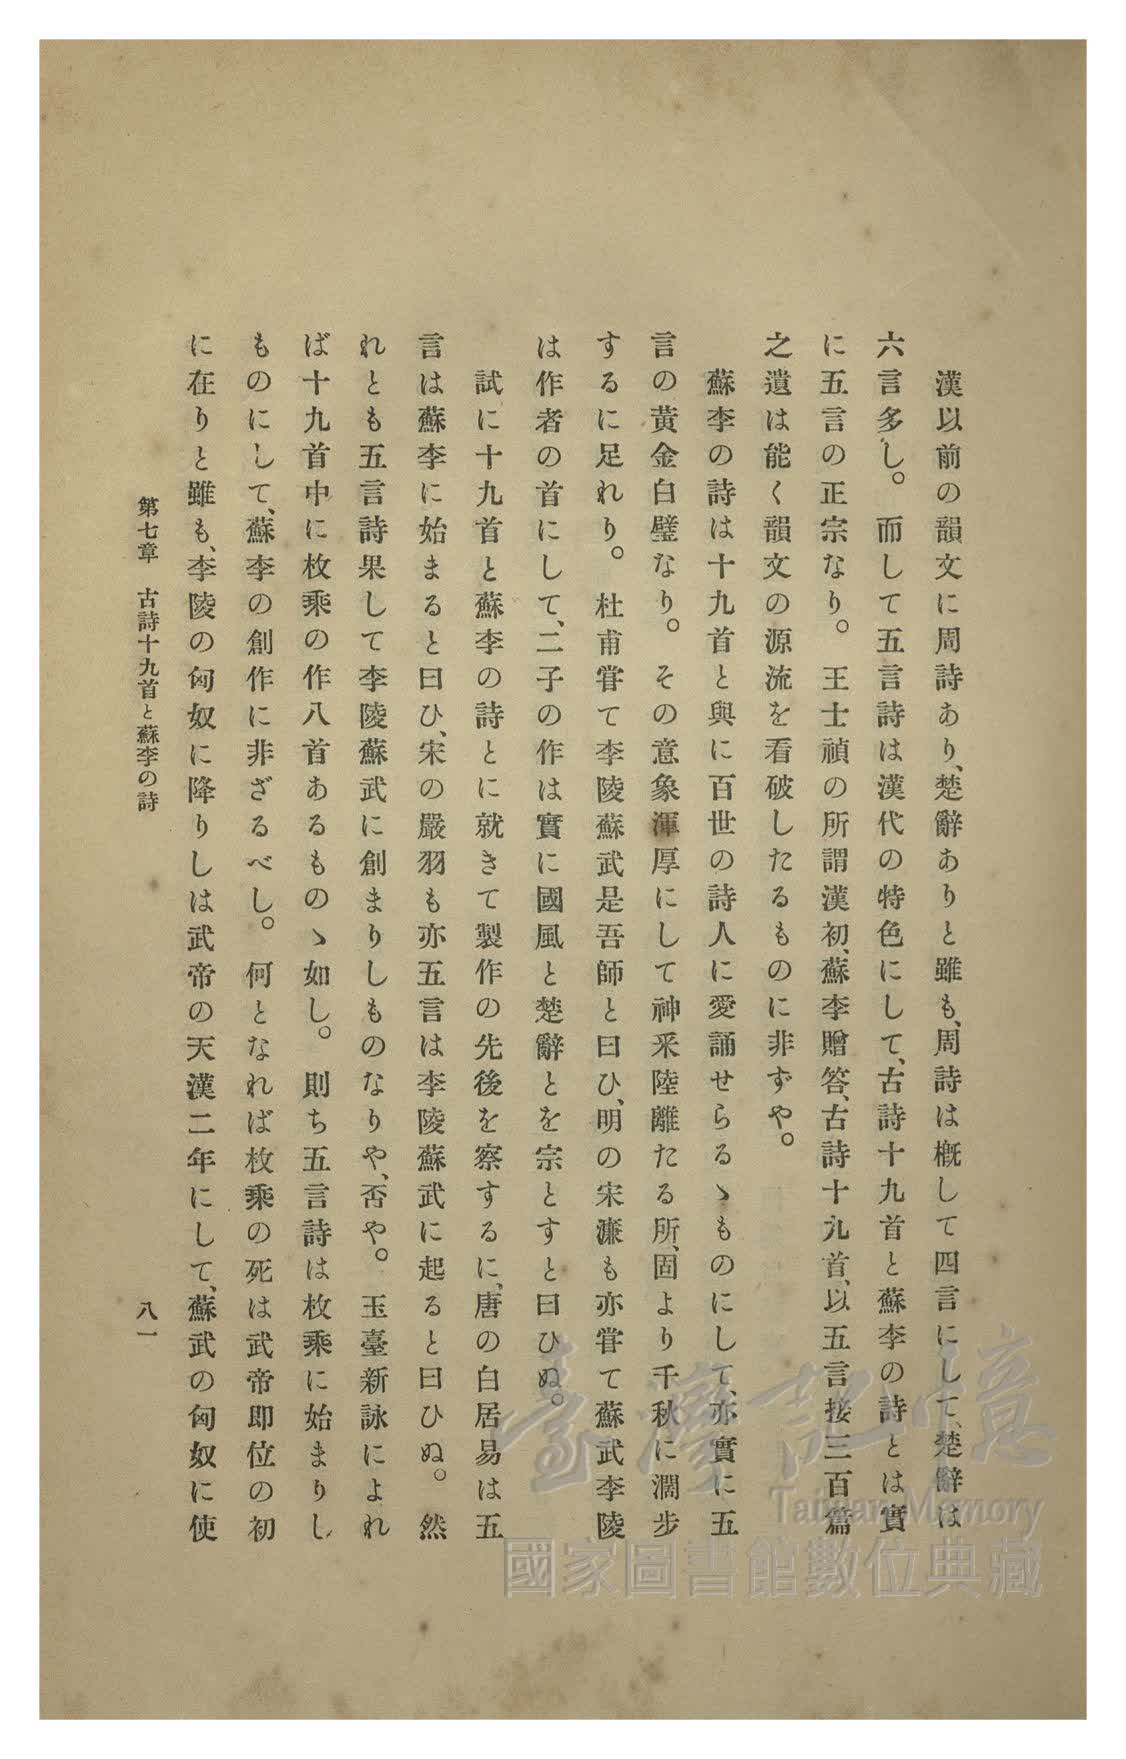 漢以前の韻文に周詩あり、楚辭ありと雖も、周詩は槪して四言にして、楚辭は
六言多し。而して五言詩は漢代の特色にして、古詩十九首と蘇李の詩とは實
に五言の正宗なり。王士禎の所謂漢初、蘇李贈答、古詩十九首、以五言接三百篇
之遺は能く韻文の源流を看破したるものに非ずや。
蘇李の詩は十九首と與に百世の詩人に愛誦せらるゝものにして、亦實に五
言の黃金白璧なり。その意象渾厚にして神釆陸離たる所、固より千秋に濶步
するに足れり。杜甫甞て李陵蘇武是吾師と曰ひ、明の宋濂も亦甞て蘇武李陵
は作者の首にして、二子の作は實に國風と楚辭とを宗とすと曰ひぬ。
試に十九首と蘇李の詩とに就きて製作の先後を察するに、唐の白居易は五
言は蘇李に始まると曰ひ、宋の嚴羽も亦五言は李陵蘇武に起ると曰ひぬ。然
れとも五言詩果して李陵蘇武に創まりしものなりや、否や。玉臺新詠によれ
ば十九首中に枚乘の作八首あるものゝ如し。則ち五言詩は枚乘に始まりし
ものにして、蘇李の創作に非ざるべし。何となれば枚乘の死は武帝即位の初
に在りと雖も、李陵の匈奴に降りしは武帝の天漢二年にして、蘇武の匈奴に使
第七章 古詩十九首と蘇李の詩
八一
臺灣記憶
Taiwan Memory
國家圖書館數位典藏